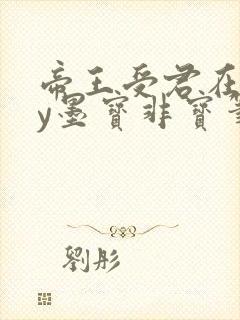 帝王受君在
y墨寶非寶筆
劉彤